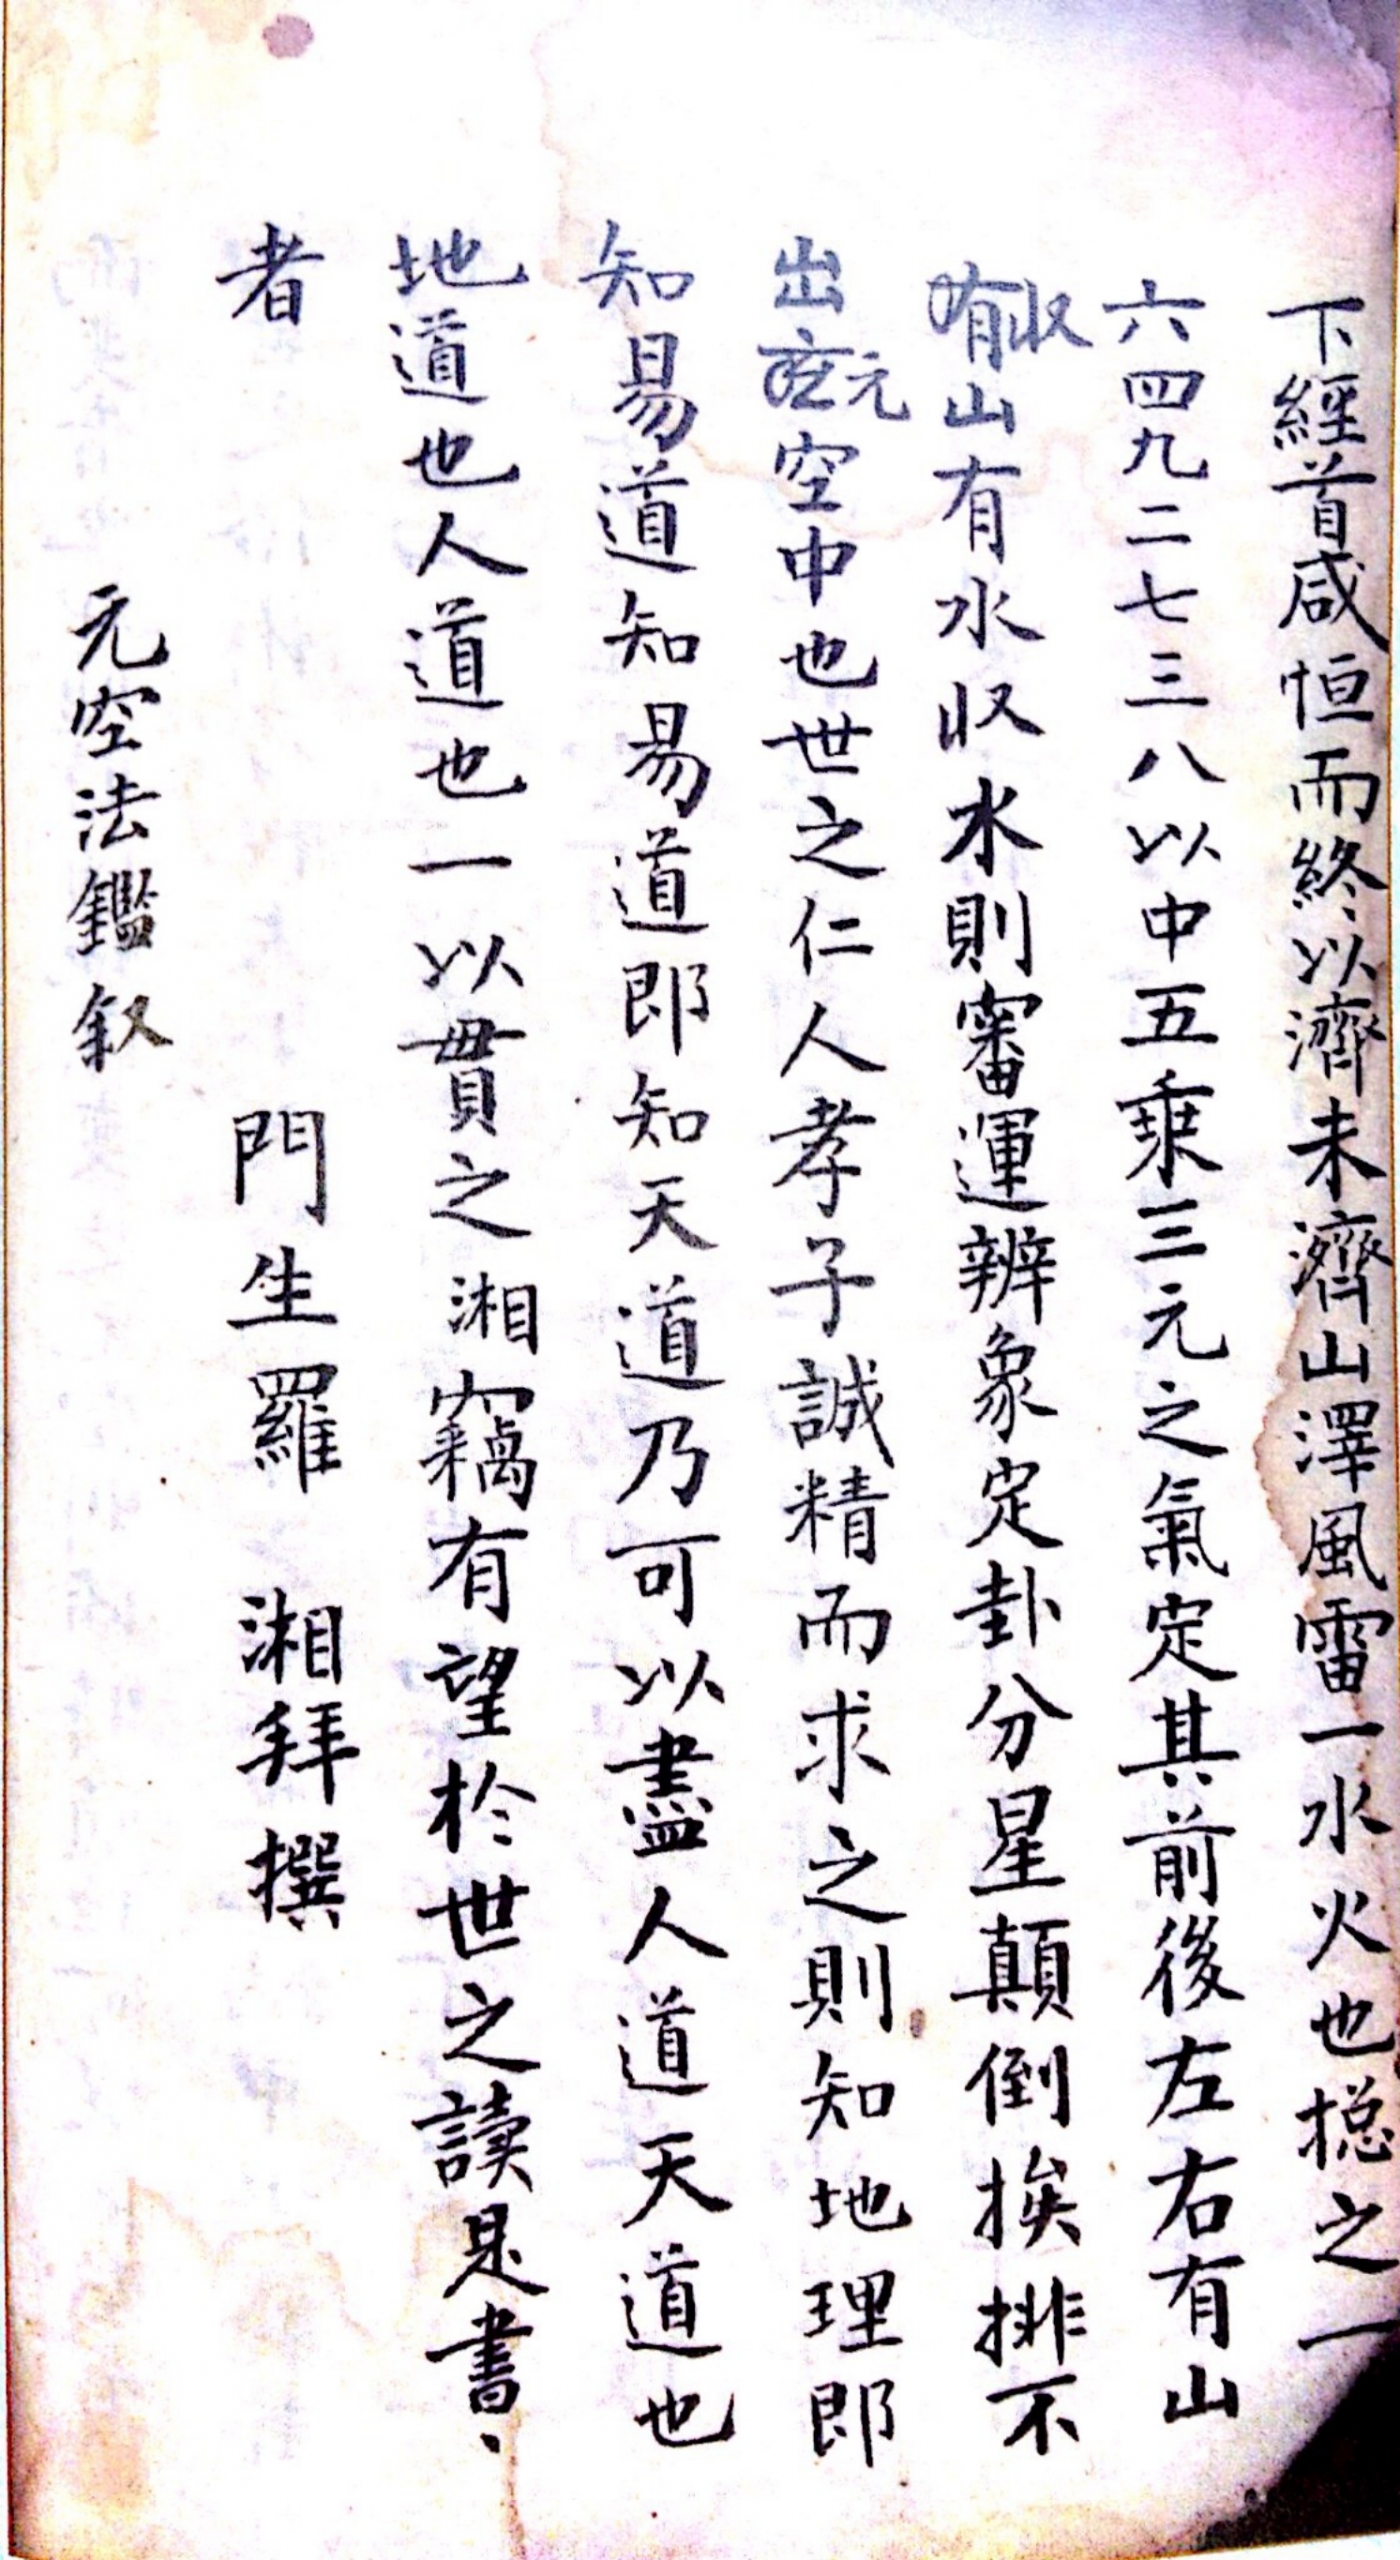 下經首咸恒而終以濟未濟山澤風雷一水火也捴之一
六四九二七三八以中五乗三元之氣定其前後左右有山
收山有水収水則審運辨象定卦分星顛倒挨排不
出元空中也世之仁人孝子誠精而求之則知地理即
知易道知易道即知天道乃可以盡人道天道也
地道也人道也一以貫之湘竊有望於世之讀是書、
者 門生羅 湘拜撰
元空法鑑叙